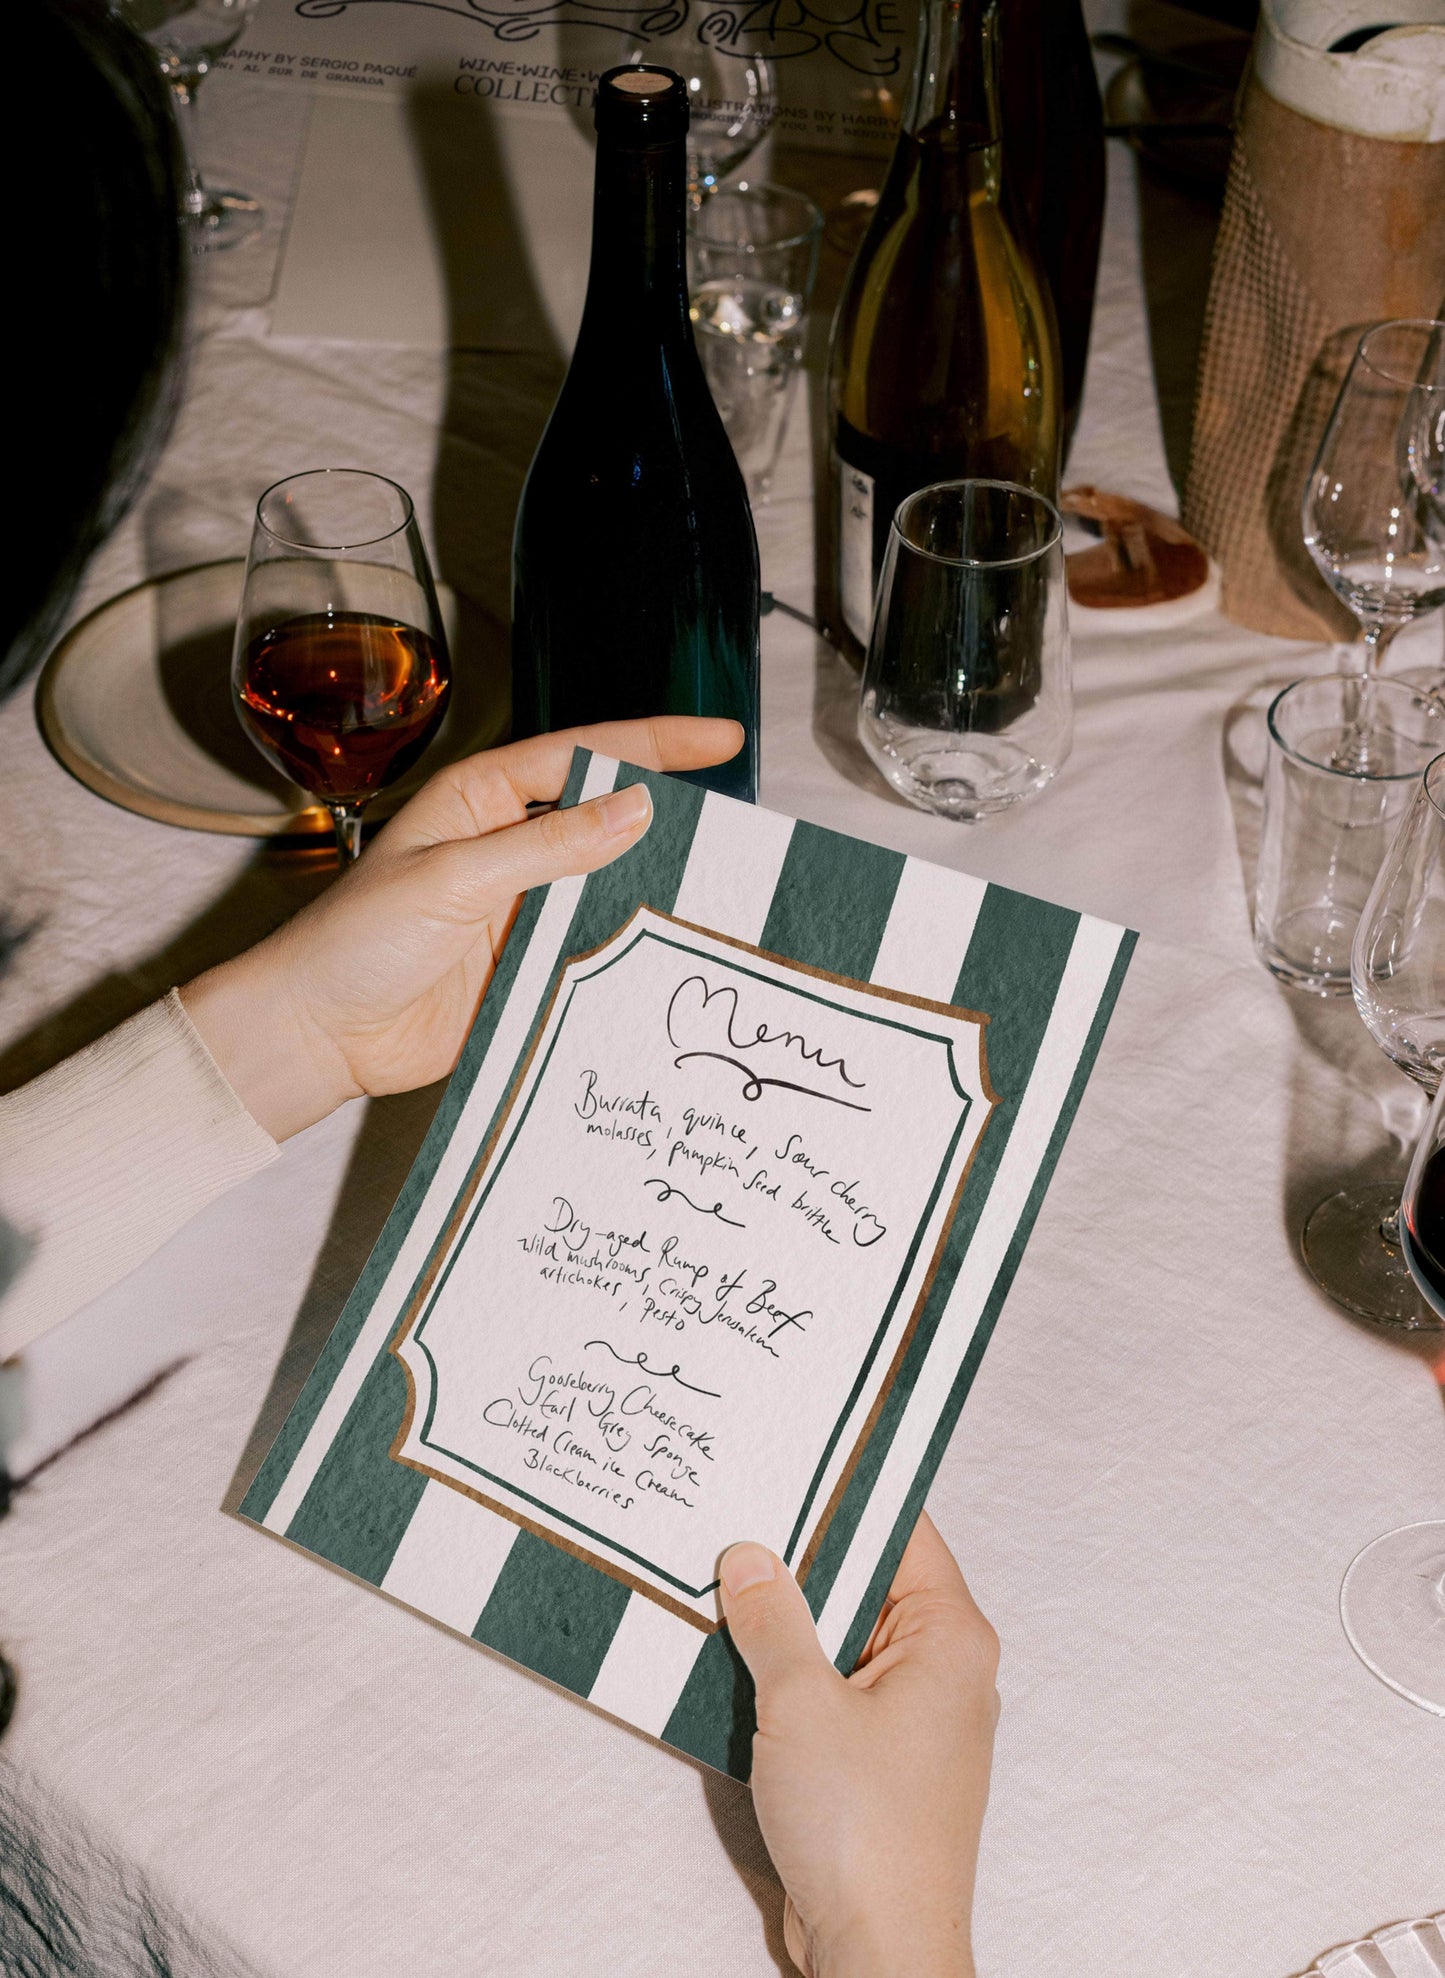 APHY BY SERGIO PAQUÉ
ON: AL SUR DE GRANADA
WINE•WINE•W
COLLECTI
LLUSTRATIONS BY HARRY
ROUGHT TO YOU BY BENDIT
Menu
Burrata, quince, Sour cherry
molasses, pumpkin seed brittle
Dry-aged Rump of Beef
wild mushrooms, Crispy Jerusalem
artichokes, Pesto
Gooseberry Cheesecake
Earl Grey Sponge
Clotted Cream ice Cream
Blackberries